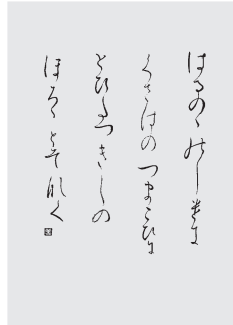 はるのゝのしけき
くさはのつまこひに
とひたつきしの
ほろゝとそなく